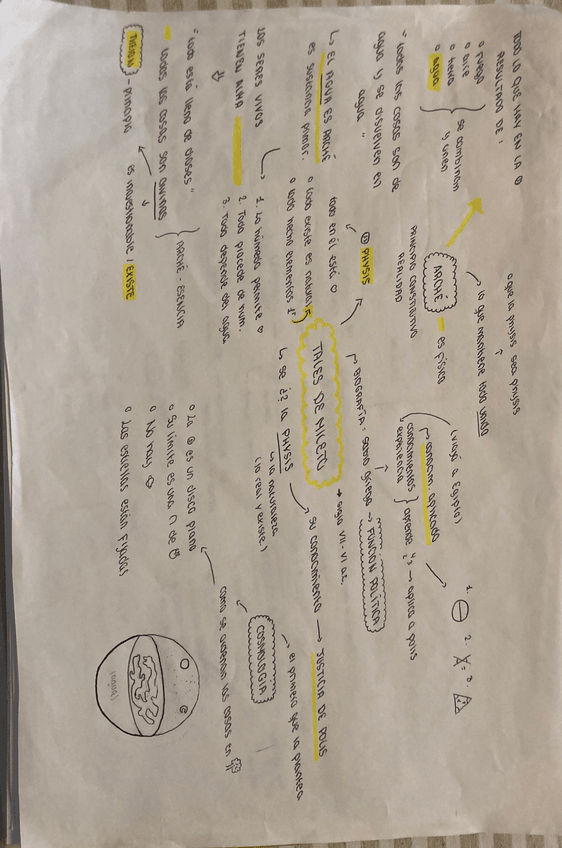 TODO LO QUE HAY EN LA
RESULTADO DE:
o fuego
o aire
o tierra
o agua
se combinan
y unen
"todas las cosas son de
agua y se disuelven en
agua"
↳ EL AGUA ES ARCHÉ
es sustancia primor.
LOS SERES VIVOS
TIENEN ALMA
"todo está lleno de dioses"
todas las cosas son divinas
ARCHÉ · ESENCIA
- principio
es indestructible / EXISTE
o que la physis sea physis
lo que mantiene todo unido
ARCHÉ
es físico
PRINCIPIO CONSTITUTIVO
REALIDAD
PHYSIS
todo en él está
o todo existe es natural
o todo hecho elementos
1. Lo húmedo permite
2. Todo procede de hum.
3. Todo depende del agua
TALES DE MILETO
→ siglo VII - VI a.c.
BIOGRAFÍA: sabio griego → FUNCIÓN POLÍTICA
(viajó a Egipto)
conocim. aplicado
conocimientos
experiencia
aprende y → aplica a polis
1.
2.
3.
↳ se ¿? la PHYSIS
↳ la naturaleza
(lo real y existe)
su conocimiento → JUSTICIA DE POLIS
COSMOLOGÍA
el primero que la plantea
como se ordenan las cosas en
o La ⊕ es un disco plano
o Su límite es una ∩ de
o No hay
o Las estrellas están fijadas